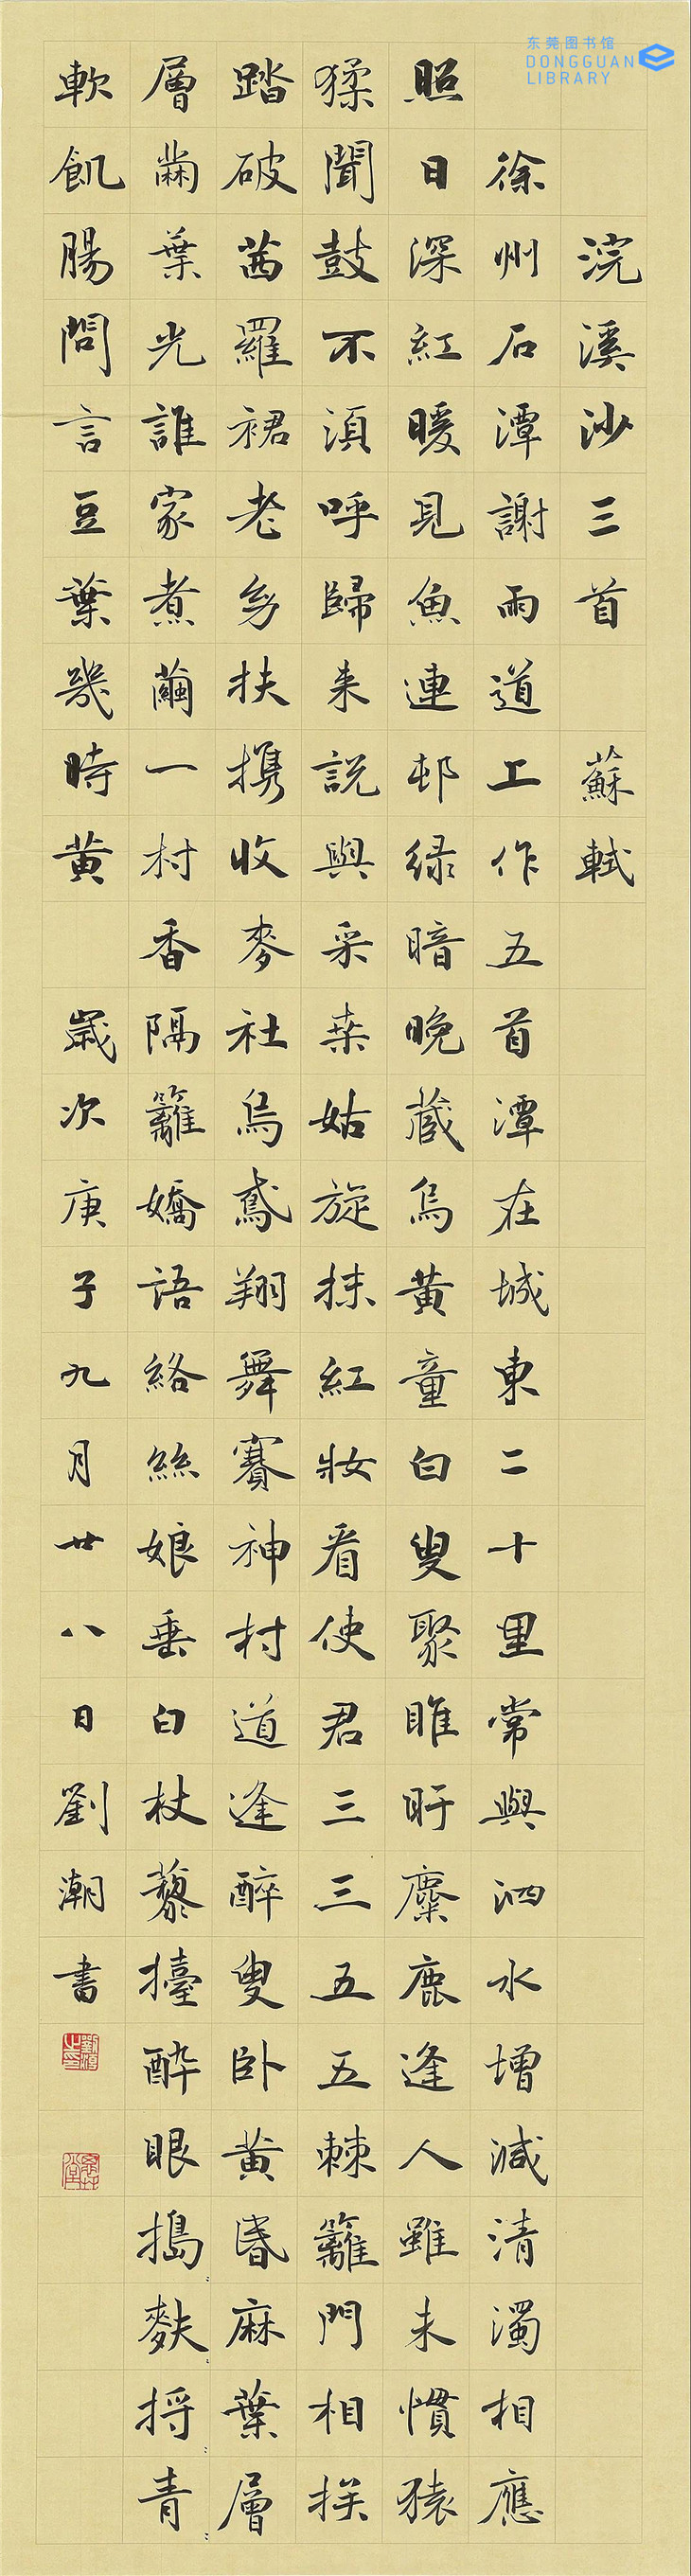 东莞图书馆
DONGGUAN
LIBRARY
浣溪沙三首 蘇軾
徐州石潭謝雨道上作五首潭在城東二十里常與泗水增減清濁相應
照日深紅暖見魚連邨綠暗晚藏烏黃童白叟聚睢盱麋鹿逢人雖未慣猿
猱聞鼓不須呼歸来說與采桒姑旋抹紅妝看使君三三五五棘籬門相挨
踏破茜羅裙老幼扶携收麥社烏鳶翔舞賽神村道逢醉叟卧黃昏麻葉層
層檾葉光誰家煮繭一村香隔籬嬌語絡絲娘垂白杖藜擡醉眼搗麨捋青
軟飢腸問言豆葉幾時黃 歲次庚子九月廿八日劉潮書